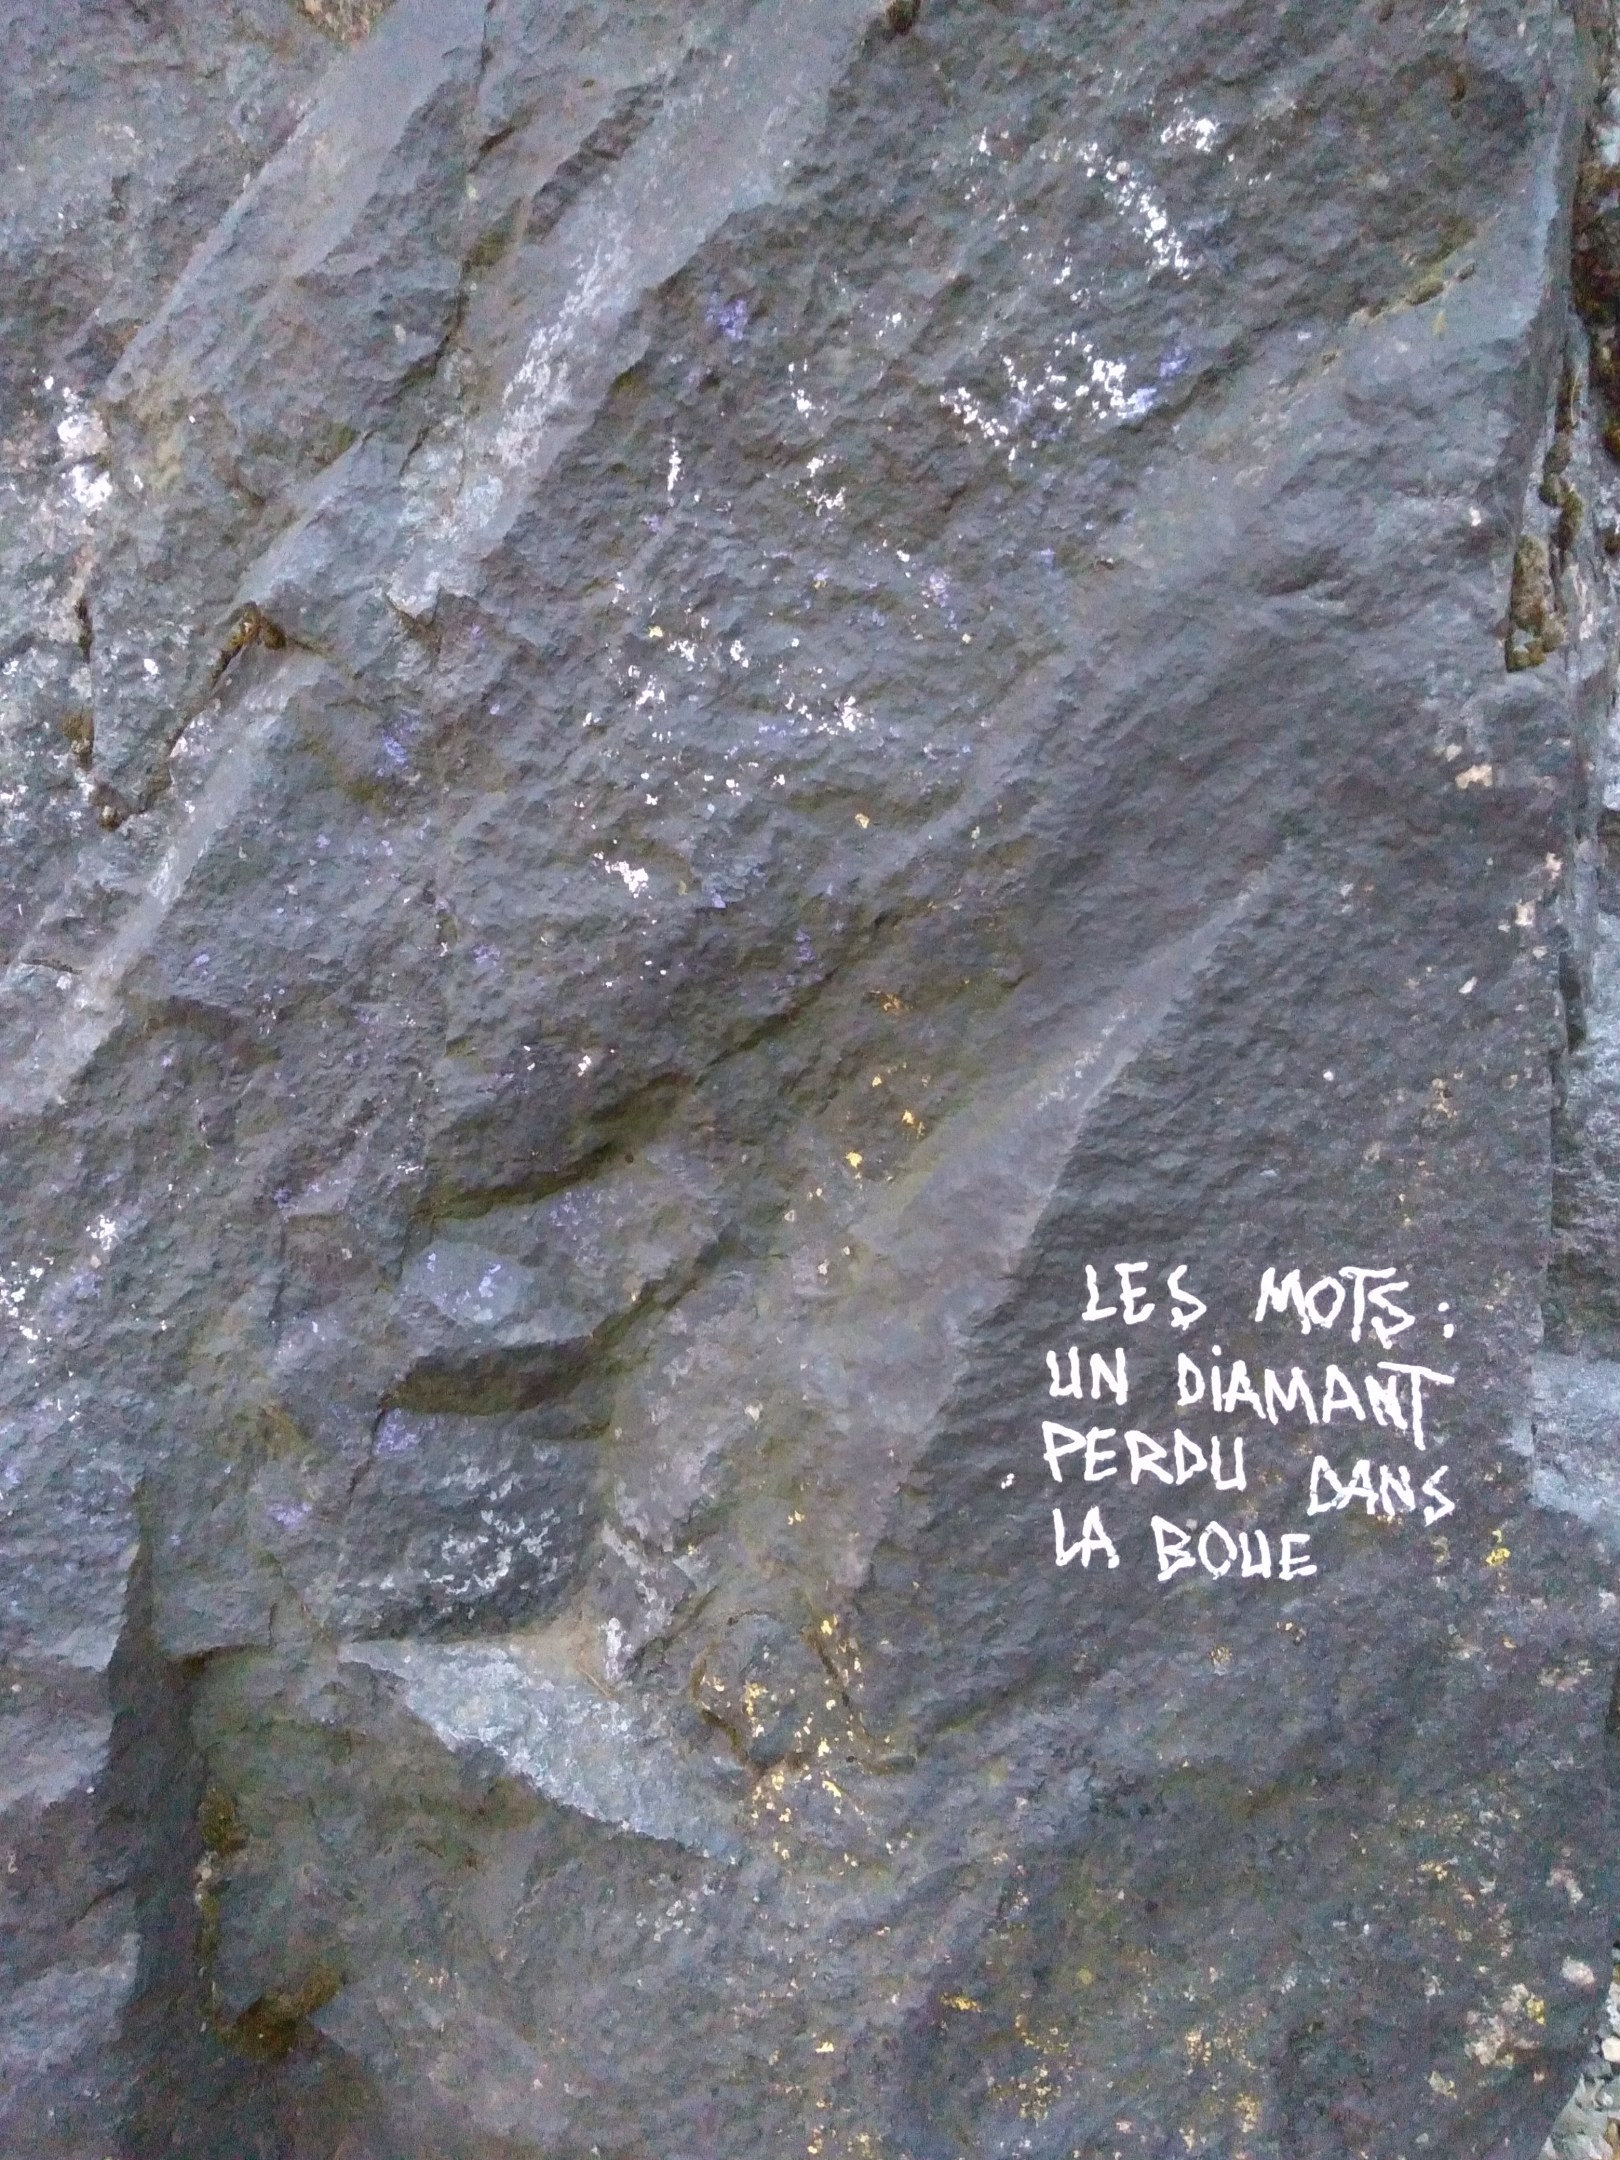 LES MOTS :
UN DIAMANT
PERDU DANS
LA BOUE